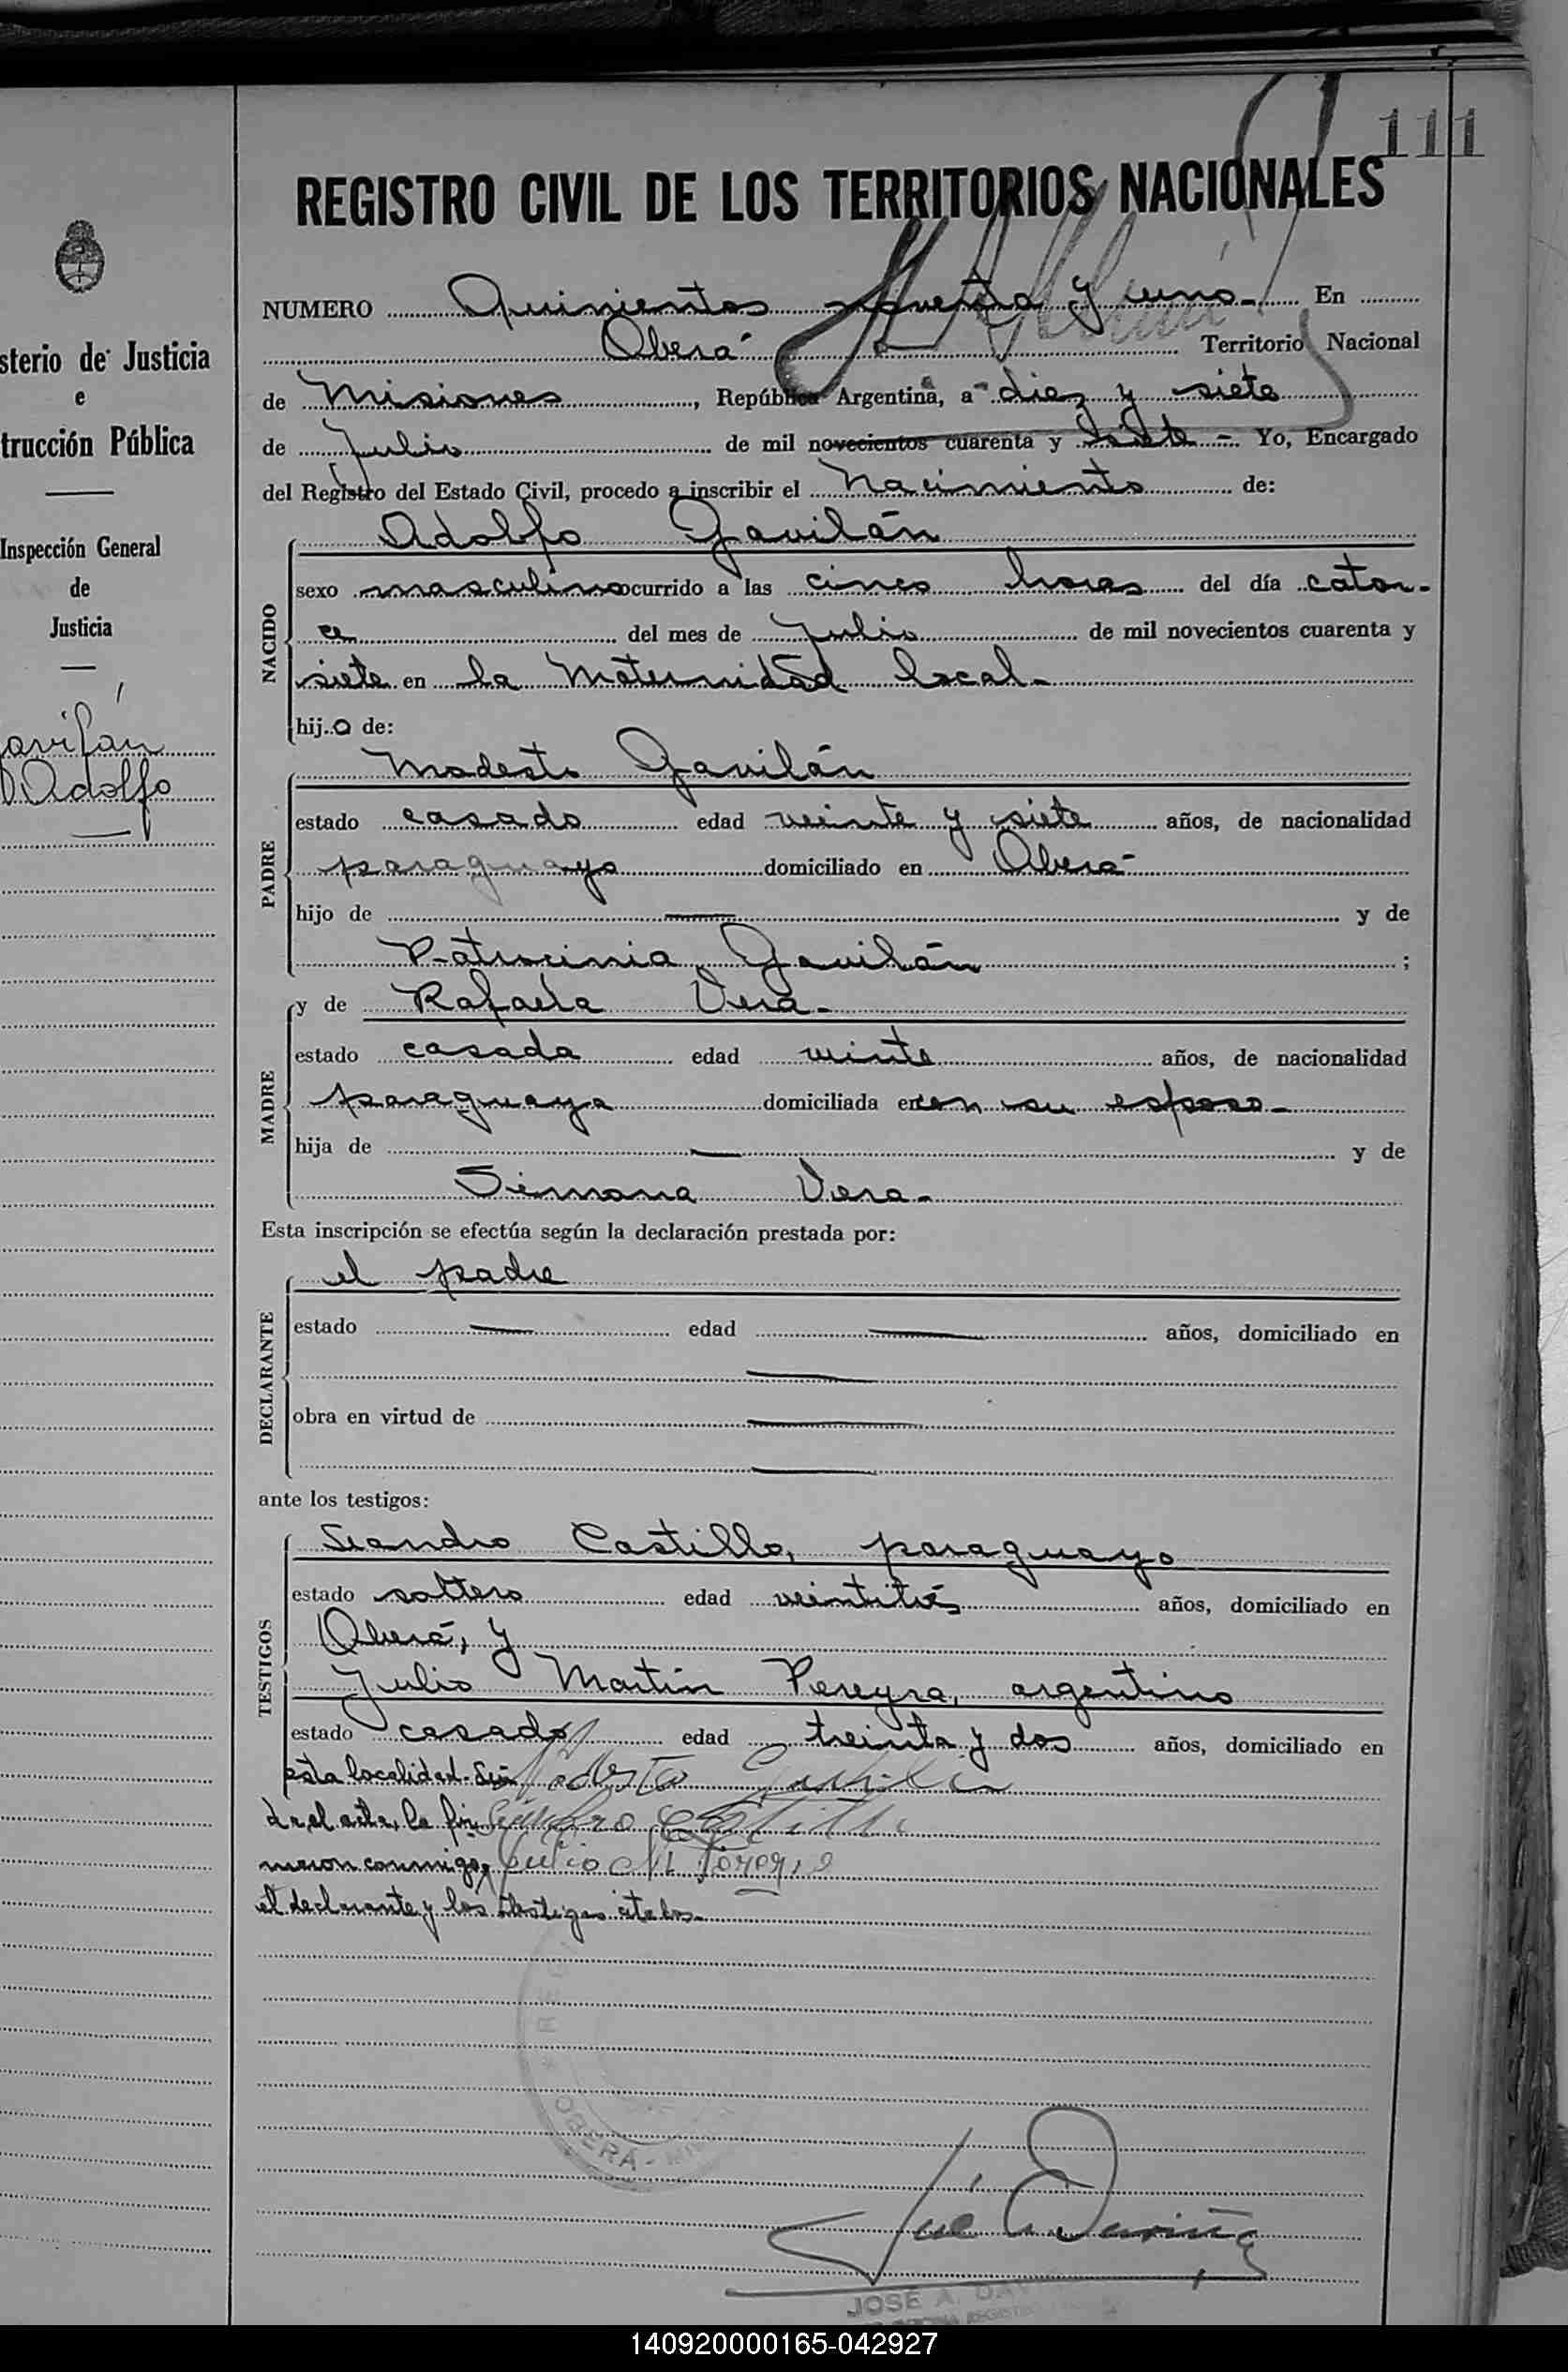 111
REGISTRO CIVIL DE LOS TERRITORIOS NACIONALES
NUMERO Quinientos noventa y uno - En
Oberá Territorio Nacional
de Misiones, República Argentina, a diez y siete
de Julio de mil novecientos cuarenta y siete - Yo, Encargado
del Registro del Estado Civil, procedo a inscribir el nacimiento de:
Adolfo Gavilán
NACIDO
sexo masculino ocurrido a las cinco horas del día cator-
ce del mes de Julio de mil novecientos cuarenta y
siete en la Maternidad local-
hijo de:
Modesto Gavilán
PADRE
estado casado edad veinte y siete años, de nacionalidad
paraguayo domiciliado en Oberá-
hijo de — y de
Patrocinia Gavilán ;
y de Rafaela Vera-
MADRE
estado casada edad veinte años, de nacionalidad
paraguaya domiciliada en con su esposo-
hija de — y de
Simona Vera-
Esta inscripción se efectúa según la declaración prestada por:
el padre
DECLARANTE
estado — edad — años, domiciliado en
—
obra en virtud de —
—
ante los testigos:
Castillo, paraguayo
TESTIGOS
estado soltero edad veintitrés años, domiciliado en
Oberá, y
Julio Martin Pereyra, argentino
estado casado edad treinta y dos años, domiciliado en
esta localidad. Modesto Gavilan
el acta, la fir
maron conmigo, Julio M. Pereyra
el declarante y los testigos citados-
OBERÁ - MI
JOSÉ A. DA
sterio de Justicia
e
trucción Pública
Inspección General
de
Justicia
avilán
Adolfo
140920000165-042927